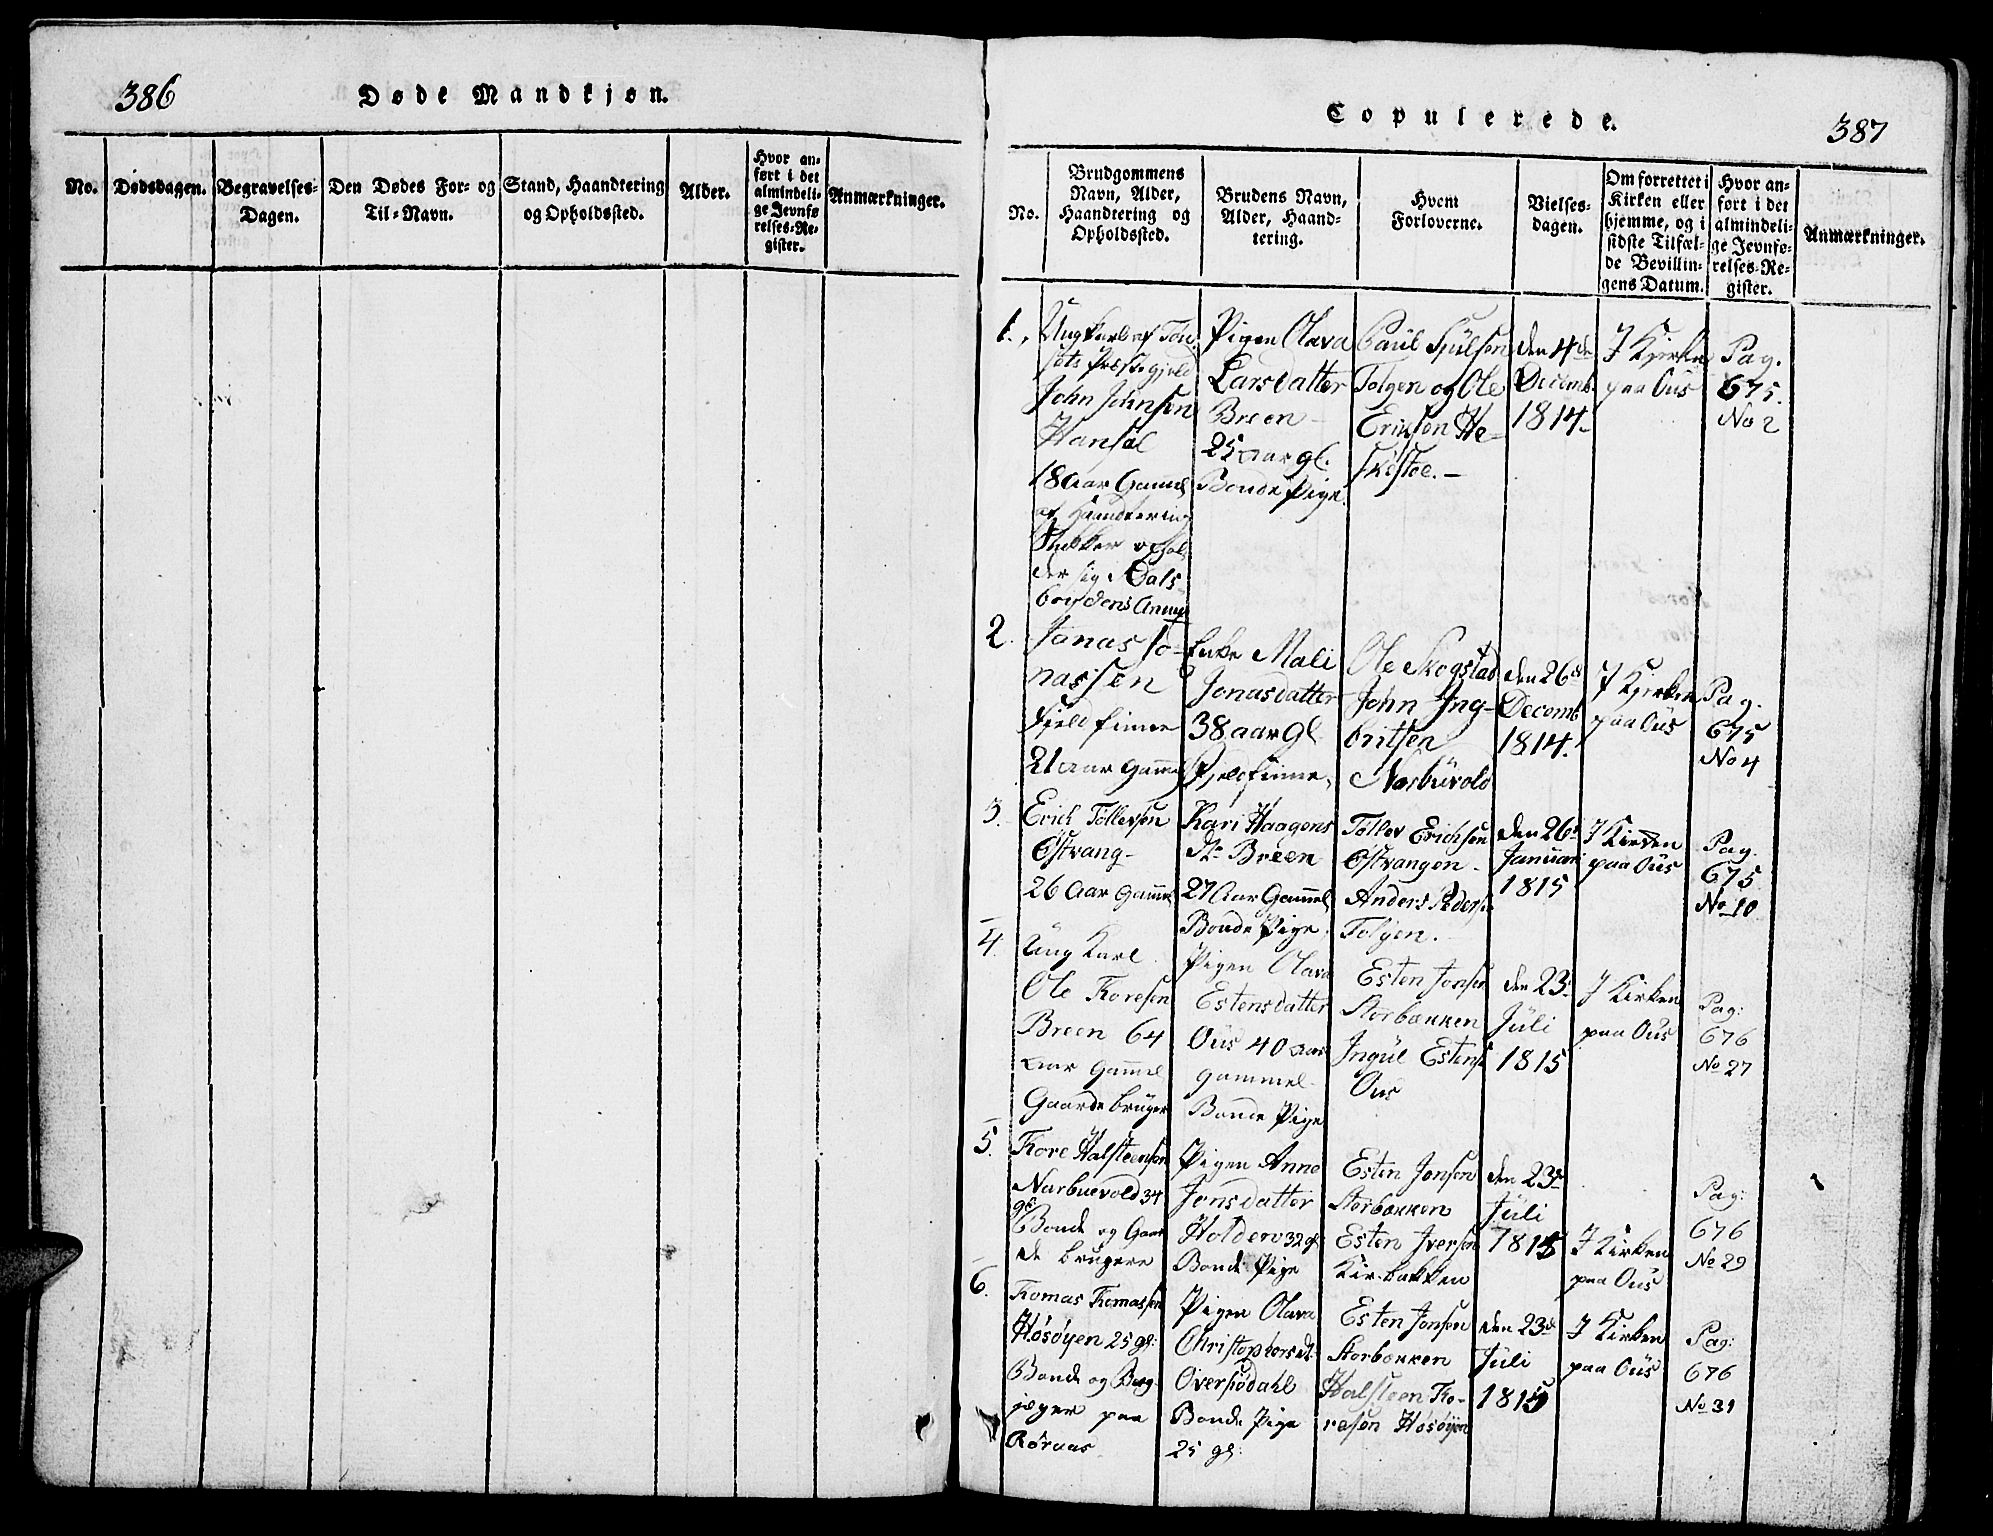 386
Døde Mandkjøn.
No.
Dødsdagen.
Begravelses-
Dagen.
Den Dødes For- og
Til-Navn.
Stand, Haandtering
og Opholdssted.
Alder.
Hvor an-
ført i det
almindeli-
ge Jevnfø
relses-Re-
gister.
Anmærkninger.
Copulerede.
387
No.
Brudgommens
Navn, Alder,
Haandtering og
Opholdssted.
Brudens Navn,
Alder, Haand-
tering.
Hvem
Forloverne.
Vielses-
dagen.
Om forrettet i
Kirken eller
hjemme, og i
sidste Tilfæl-
de Bevillin-
gens Datum.
Hvor an-
ført i det
almindeli-
ge Jevnfø-
relses-Re-
gister.
Anmærkninger.
1.
Ungkarl af Tøn-
sets Præstegjeld
John Johnsen
Hansal
18 Aar Gamel
af Haandtering
ophol-
der sig
Pigen Olava
Larsdatter
Breen -
25 aar gl.
Bonde Pige.
Paul
Tolgen og Ole
Eriksen He-
den 4de
Decemb.
1814.
I Kjerken
paa Ous
Pag.
675.
No 2
2.
Jonas Jo-
nassen
Fjeld finne
21 aar Gamel
Enke Mali
Jonasdatter
38 aar gl
Fjeldfinne.
Ole Skogstad
John Ing-
britsen
Narbuvold
den 26de
Decemb
1814.
I Kjerken
paa Ous
Pag.
675
No 4
3.
Erich Tollevsen
Østvang-
26 Aar Gamel
Kari Haagens
Dtr Breen
27 Aar Gammel
Bonde Pige.
Tollov Erichsen
Østvangen.
Anders Pedersen
Tolgen.
den 26d
Januari
1815
I Kirken
paa Ous
Pag.
675
No 10
4.
Ung Karl
Ole Toresen
Breen 64
aar Gammel
Gaarde bruger
Pigen Olava
Estensdatter
Ous 40 aar
gammel
Bonde Pige
Esten Jonsen
Storbækken
Ingul Estens
Ous
den 23d
Juli
1815
I Kirken
paa Ous
Pag:
676
No 27
5.
Tore Halsteensen
Narbuevold 34
gl
Bonde og Gaar
de brugere
Pigen Anne
Jonsdatter
Holden 32 gl
Bonde Pige
Esten Jonsen
Storbækken
Esten Iversen
Kirkbakken
den 23d
Juli
1815
I Kirken
paa Ous
Pag:
676
No 29
6.
Tomas Tomassen
Høsøyen 25 gl:
Bonde og Berg
jæger paa
Røraas
Pigen Olava
Christophersdt:
Oversjødahl
Bonde Pige
25 gl:
Esten Jonsen
Storbækken
Halsteen To-
resen Høsøyen
den 23d
Juli
1815
I Kirken
paa Ous
Pag:
676
No 31